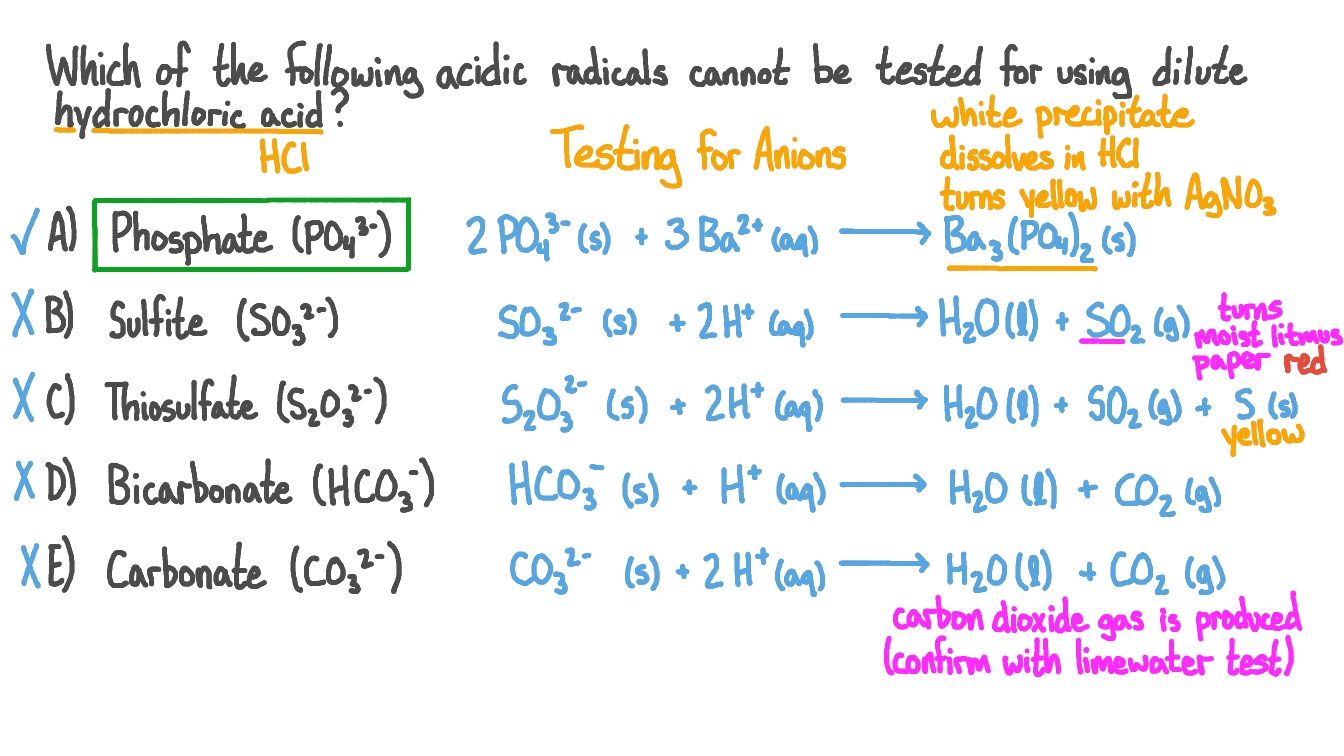 Which of the following acidic radicals cannot be tested for using dilute
hydrochloric acid?
HCl
Testing for Anions
white precipitate
dissolves in HCl
turns yellow with AgNO₃
✓ A) Phosphate (PO₄³⁻) 2 PO₄³⁻ (s) + 3 Ba²⁺ (aq) ⟶ Ba₃(PO₄)₂ (s)
X B) Sulfite (SO₃²⁻) SO₃²⁻ (s) + 2H⁺ (aq) ⟶ H₂O (l) + SO₂ (g)
turns
moist litmus
paper red
X C) Thiosulfate (S₂O₃²⁻) S₂O₃²⁻ (s) + 2H⁺ (aq) ⟶ H₂O (l) + SO₂ (g) + S (s)
yellow
X D) Bicarbonate (HCO₃⁻) HCO₃⁻ (s) + H⁺ (aq) ⟶ H₂O (l) + CO₂ (g)
X E) Carbonate (CO₃²⁻) CO₃²⁻ (s) + 2 H⁺ (aq) ⟶ H₂O (l) + CO₂ (g)
carbon dioxide gas is produced
(confirm with limewater test)